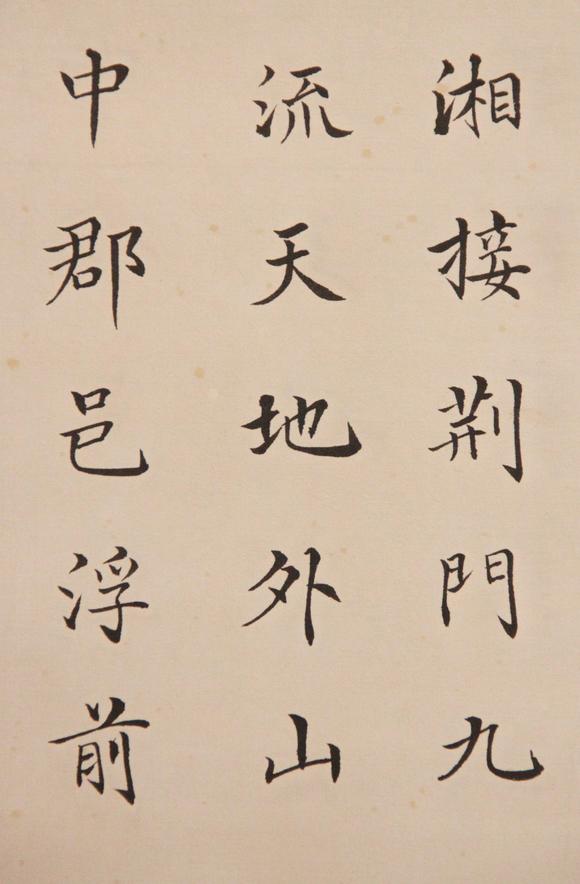 湘接荆門九
流天地外山
中郡邑浮前